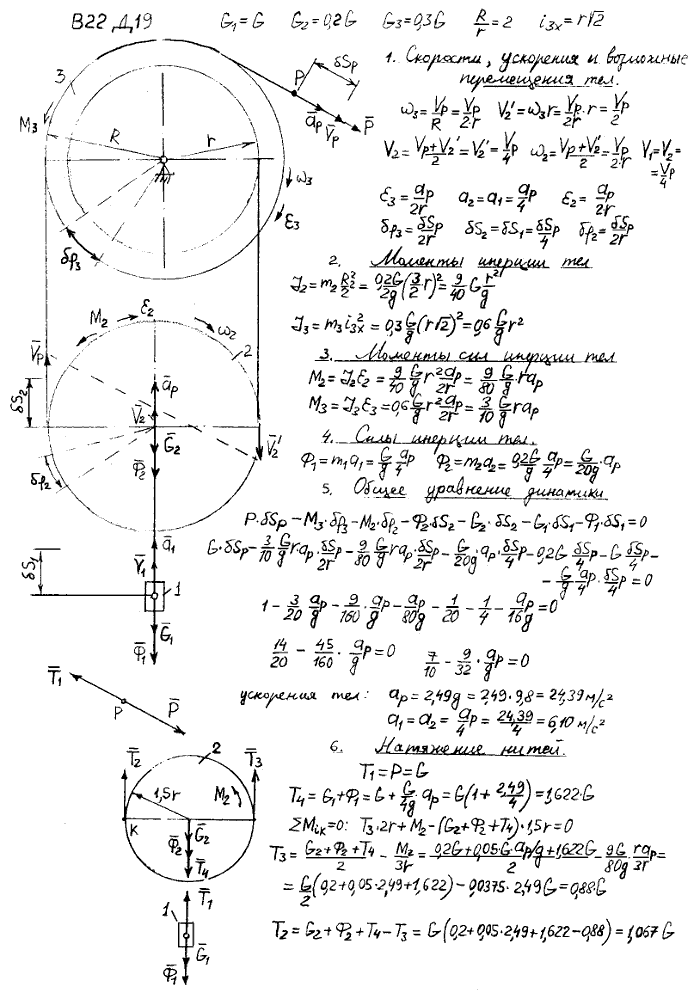 В22 Д.19 G₁=G G₂=0,2G G₃=0,3G R/r=2 i₃ₓ=r√2
1. Скорости, ускорения и возможные
перемещения тел.
ω₃=Vp/R=Vp/2r V₂'=ω₃r=Vp/2r·r=Vp/2
V₂=(Vp+V₂')/2=V₂'=Vp/4 ω₂=(Vp+V₂')/2=Vp/2·r V₁=V₂=
=Vp/4
ε₃=ap/2r a₂=a₁=ap/4 ε₂=ap/2r
δφ₃=δSp/2r δS₂=δS₁=δSp/4 δφ₂=δSp/2r
2. Моменты инерции тел
J₂=m₂R₂²/2=0,2G/2g(3/2 r)²=9/40 G r²/g
J₃=m₃i₃ₓ²=0,3G/g(r√2)²=0,6G/g r²
3. Моменты сил инерции тел
M₂=J₂ε₂=9/40 G/g r² ap/2r=9/80 G/g rap
M₃=J₃ε₃=0,6G/g r² ap/2r=3/10 G/g rap
4. Силы инерции тел.
Φ₁=m₁a₁=G/g ap/4 Φ₂=m₂a₂=0,2G/g ap/4=G/20g·ap
5. Общее уравнение динамики
P·δSp−M₃·δφ₃−M₂·δφ₂−Φ₂·δS₂−G₂·δS₂−G₁·δS₁−Φ₁·δS₁=0
G·δSp−3/10 G/g rap·δSp/2r−9/80 G/g rap·δSp/2r−G/20g·ap·δSp/4−0,2G δSp/4−G δSp/4−
−G/g ap/4·δSp/4=0
1−3/20 ap/g−9/160·ap/g−ap/80g−1/20−1/4−ap/16g=0
14/20−45/160·ap/g=0 7/10−9/32·ap/g=0
ускорения тел: ap=2,49g=2,49·9,8=24,39м/с²
a₁=a₂=ap/4=24,39/4=6,10м/с²
6. Натяжение нитей.
T₁=P=G
T₄=G₁+Φ₁=G+G/4g ap=G(1+2,49/4)=1,622·G
ΣMᵢₖ=0: T₃·2r+M₂−(G₂+Φ₂+T₄)·1,5r=0
T₃=(G₂+Φ₂+T₄)/2−M₂/3r=(0,2G+0,05G·ap/g+1,622G)/2−9G/80g·rap/3r=
=G/2(0,2+0,05·2,49+1,622)−0,0375·2,49G=0,88G
T₂=G₂+Φ₂+T₄−T₃=G(0,2+0,05·2,49+1,622−0,88)=1,067G
3
M₃
R
r
P
δSp
ap
Vp
P
ω₃
ε₃
δφ₃
M₂
ε₂
ω₂
2
Vp
ap
δS₂
V₂
G₂
V₂'
Φ₂
δφ₂
a₁
V₁
δS₁
1
G₁
Φ₁
T₁
P
P
T₂
2
T₃
1,5r
M₂
K
G₂
Φ₂
T₄
T₁
1
G₁
Φ₁